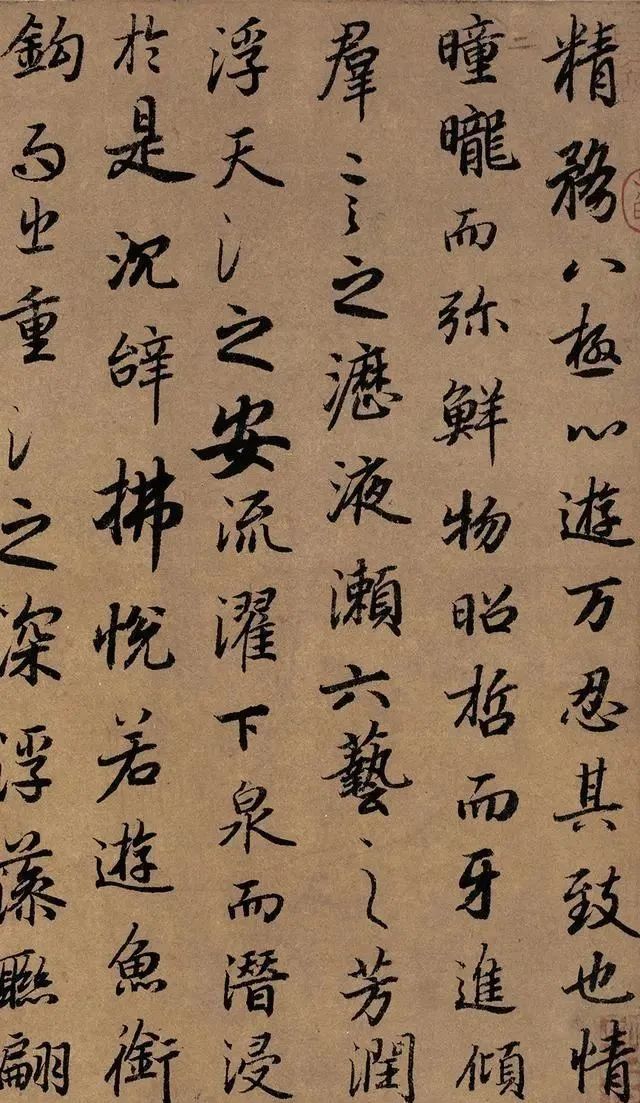 精務八極心遊万忍其致也情
曈曨而弥鮮物昭晢而牙進傾
羣言之瀝液瀨六藝之芳潤
浮天氵之安流濯下泉而潛浸
於是沉辝拂悅若遊魚銜
鈎而出重氵之深浮藻聯翩